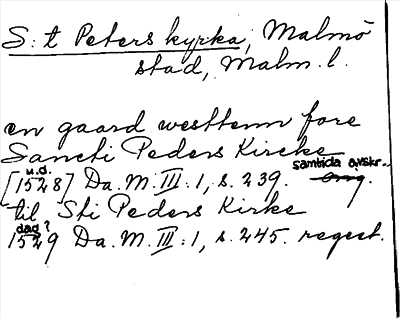 S:t Peters kyrka, Malmö
stad, Malm. l.
en gaard westtenn fore
Sancti Peders Kircke
u.d. samtida avskr..
[1528] Da. M. III: 1, s. 239. orig.
til Sti Peders Kirke
dad?
1529 Da. M. III: 1, s. 245. regest.